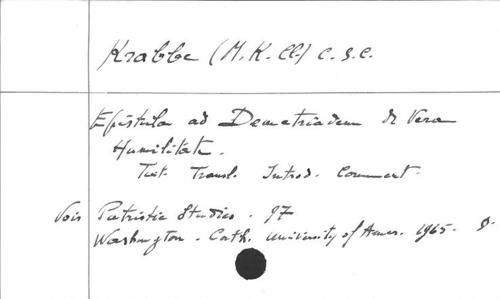 Krabbe (M. K. Cl.) c. s. c.
Epistula ad Demetriadem de Vera
Humilitate.
Text. Transl. Introd. Comment.
Voir Patristic Studies. 97
Washington. Cath. University of Amer. 1965.